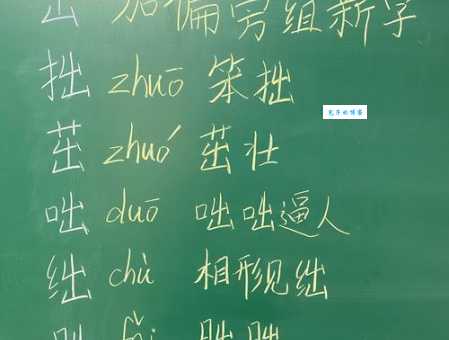 出 加偏旁组新字
拙 zhuō 笨拙
茁 zhuó 茁壮
咄 duō 咄咄逼人
绌 chù 相形见绌
朏 fěi 朏朏